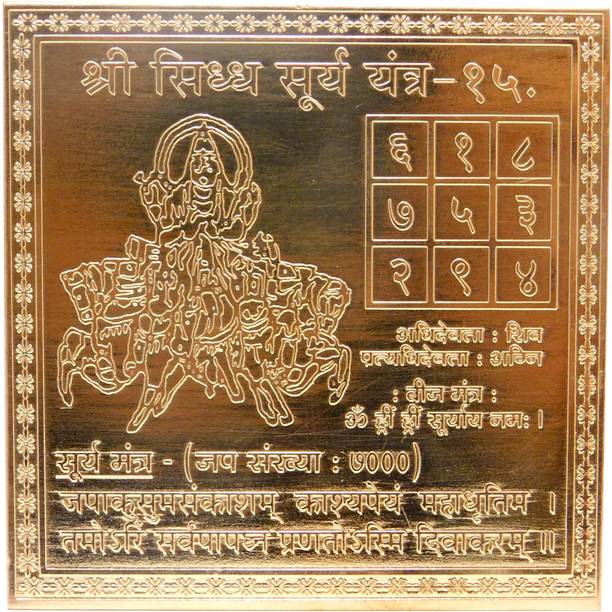 श्री सिध्ध सूर्य यंत्र - १५.
६ १ ८
७ ५ ३
२ ९ ४
अधिदेवता : शिव
प्रत्यधिदेवता : अग्नि
: बीज मंत्र :
ॐ ह्रीं ह्रीं सूर्याय नमः ।
सूर्य मंत्र - (जप संख्या : ७०००)
जपाकसुमसंकाशम् काश्यपेयं महाधृतिम ।
तमोऽरि सर्वपापघ्न प्रणतोऽस्मि दिवाकरम् ॥